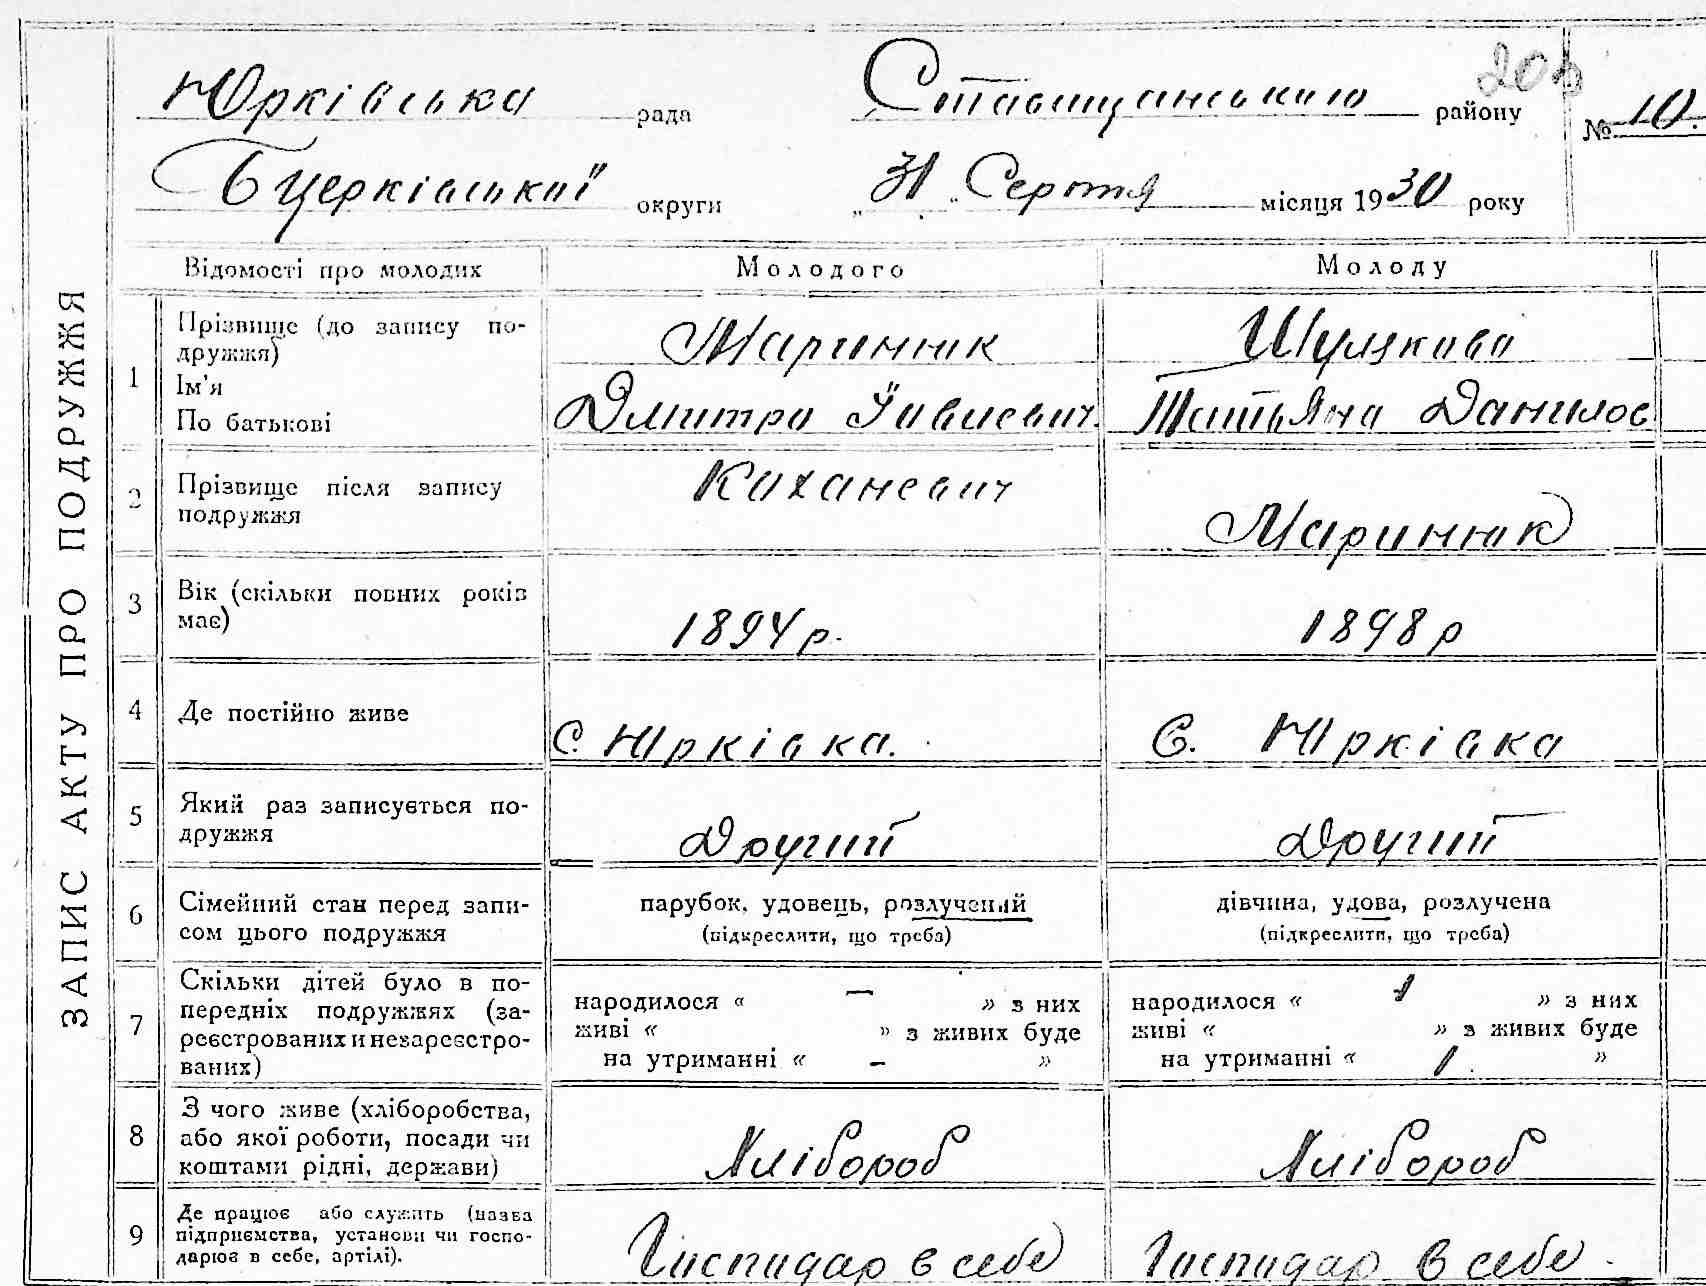 Юрківська рада Ставищанського району № 10.
Бцерківської округи „31„ Серпня місяця 1930 року
ЗАПИС АКТУ ПРО ПОДРУЖЖЯ
Відомості про молодих Молодого Молоду
1 Прізвище (до запису по-
дружжя) Маринюк
Ім'я
По батькові Дмитро Данилов
2 Прізвище після запису Каханевич
подружжя Маринюк
3 Вік (скільки повних років
має) 1894 р. 1898 р
4 Де постійно живе С. Юрківка. С. Юрківка
5 Який раз записується по-
дружжя Другий Другий
6 Сімейний стан перед запи-
сом цього подружжя
парубок, удовець, розлучений
(підкреслити, що треба)
дівчина, удова, розлучена
(підкреслити, що треба)
7 Скільки дітей було в по-
передніх подружжях (за-
реєстрованих и незареєстро-
ваних)
народилося « — » з них
живі « » з живих буде
на утриманні « - »
народилося « 1 » з них
живі « » з живих буде
на утриманні « 1. »
8 З чого живе (хліборобства,
або якої роботи, посади чи
коштами рідні, держави) Хлібороб Хлібороб
9 Де працює або служить (назва
підприємства, установи чи госпо-
дарює в себе, артілі). Господар в себе Господар в себе.